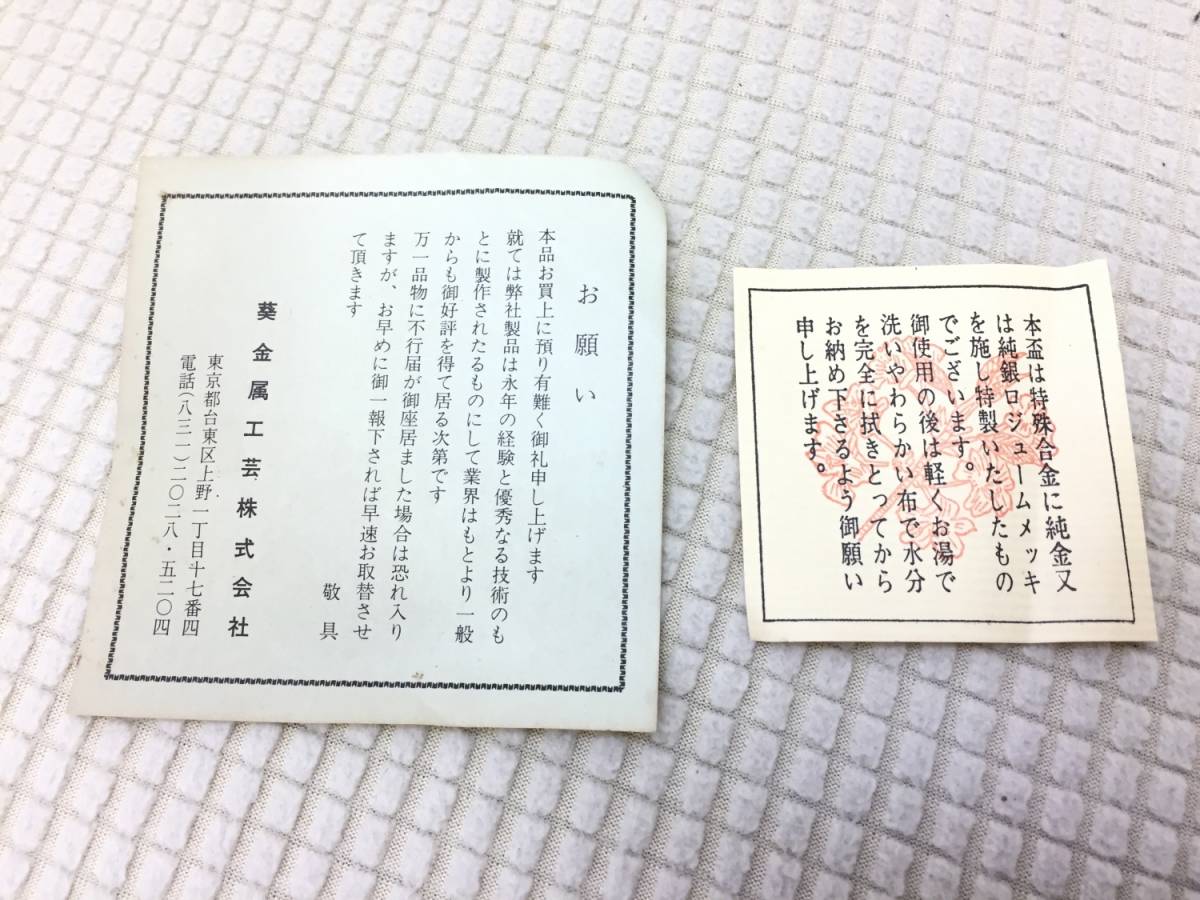 お願い
本品お買上に預り有難く御礼申し上げます
就ては弊社製品は永年の経験と優秀なる技術のも
とに製作されたるものにして業界はもとより一般
からも御好評を得て居る次第です
万一品物に不行届が御座居ました場合は恐れ入り
ますが、お早めに御一報下されば早速お取替させ
て頂きます
敬具
葵金属工芸株式会社
東京都台東区上野一丁目十七番四
電話(八三一)二〇二八・五二〇四
本盃は特殊合金に純金又
は純銀ロジュームメッキ
を施し特製いたしたもの
でございます。
御使用の後は軽くお湯で
洗いやわらかい布で水分
を完全に拭きとってから
お納め下さるよう御願い
申し上げます。